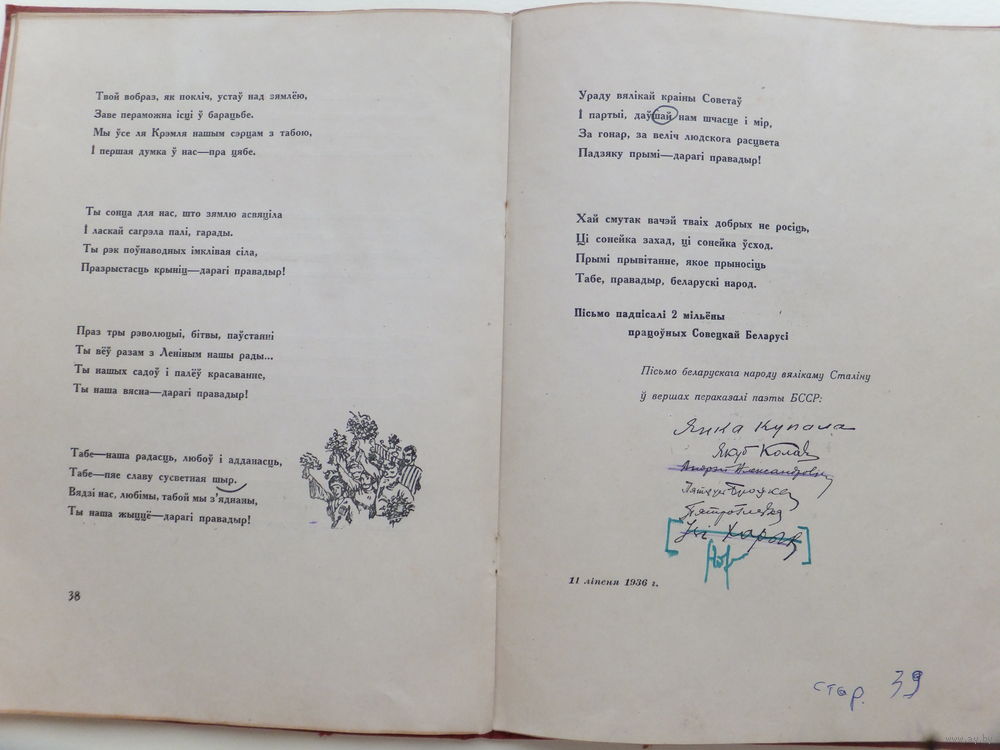 Твой вобраз, як покліч, устаў над зямлёю,
Заве пераможна ісці ў барацьбе.
Мы ўсе ля Крэмля нашым сэрцам з табою,
І першая думка ў нас—пра цябе.
Ты сонца для нас, што зямлю асвяціла
І ласкай сагрэла палі, гарады.
Ты рэк поўнаводных імклівая сіла,
Празрыстасць крыніц—дарагі правадыр!
Праз тры рэволюцыі, бітвы, паўстанні
Ты вёў разам з Леніным нашы рады...
Ты нашых садоў і палёў красаванне,
Ты наша вясна—дарагі правадыр!
Табе—наша радасць, любоў і адданасць,
Табе—пяе славу сусветная шыр.
Вядзі нас, любімы, табой мы з'яднаны,
Ты наша жыццё—дарагі правадыр!
38
Ураду вялікай краіны Советаў
І партыі, даўшай нам шчасце і мір,
За гонар, за веліч людскога расцвета
Падзяку прымі—дарагі правадыр!
Хай смутак вачэй тваіх добрых не росіць,
Ці сонейка захад, ці сонейка ўсход.
Прымі прывітанне, якое прыносіць
Табе, правадыр, беларускі народ.
Пісьмо падпісалі 2 мільёны
працоўных Совецкай Беларусі
Пісьмо беларускага народу вялікаму Сталіну
ў вершах пераказалі паэты БССР:
Янка Купала
Якуб Колас
Андрэй Александровіч
Пятрусь Броўка
Пятро Глебка
Ізі Харык
11 ліпеня 1936 г.
стар. 39
www.ay.by